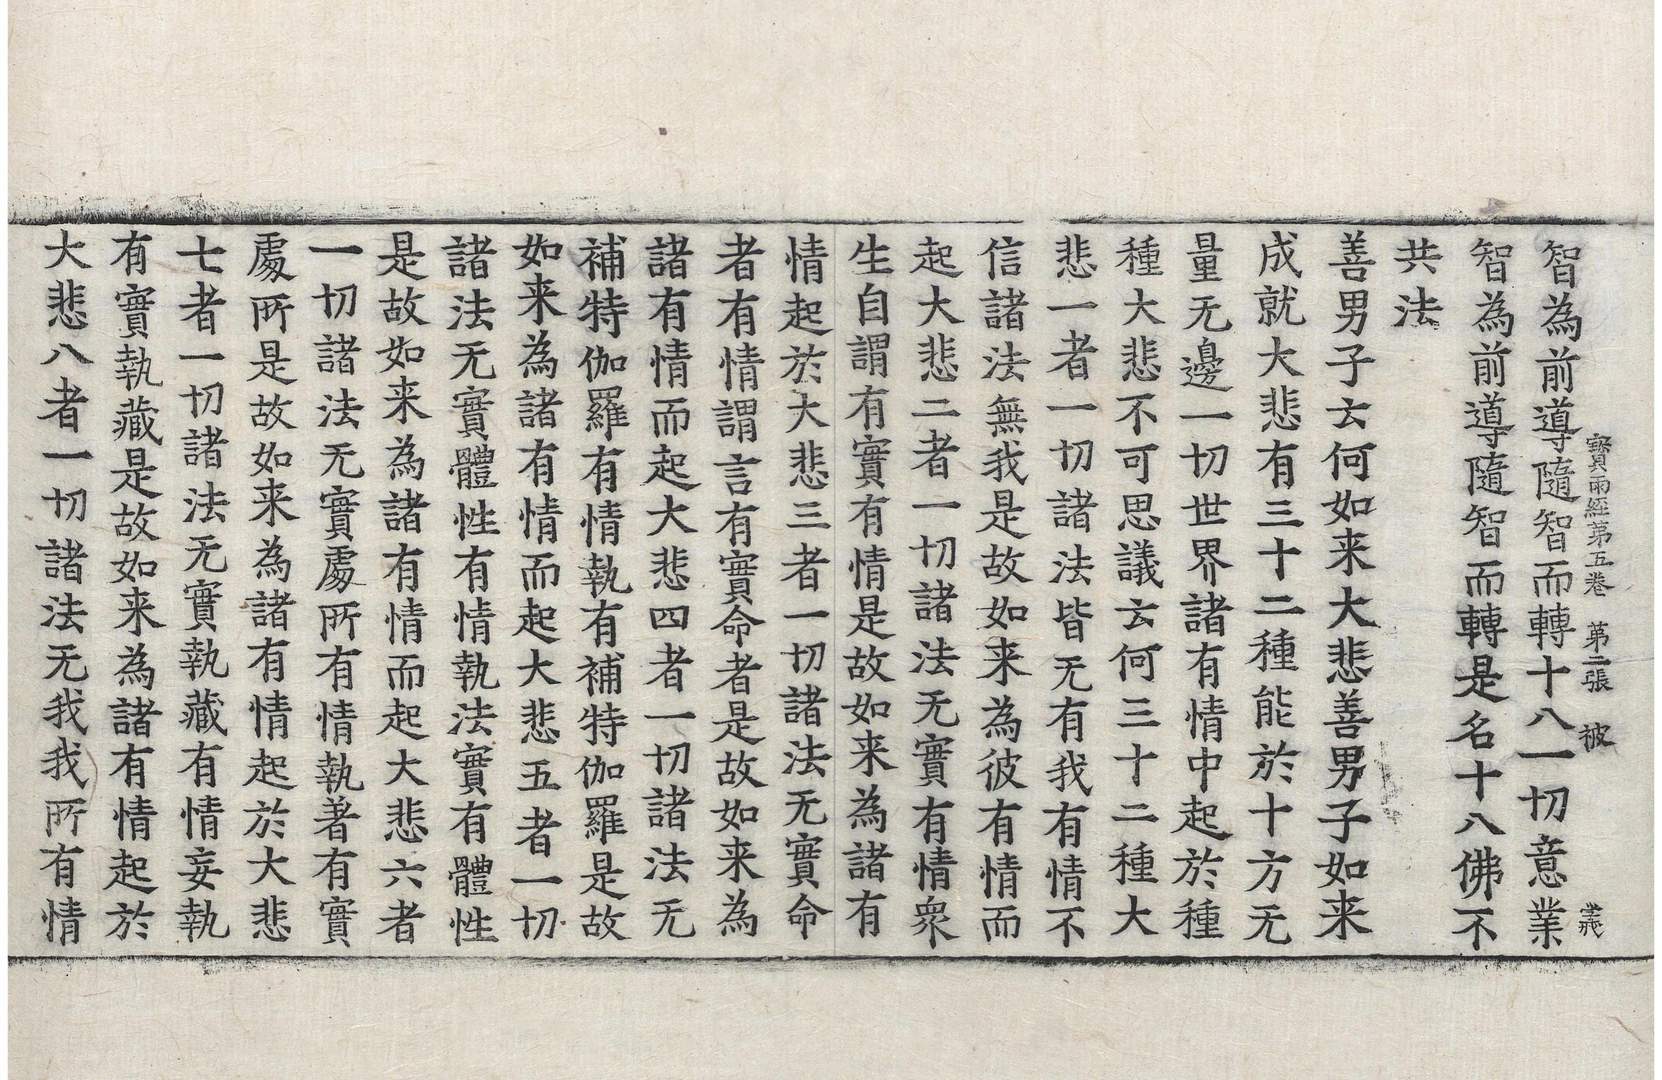 寶雨經第五卷 第二張 被 義
智為前導隨智而轉十八一切意業
智為前導隨智而轉是名十八佛不
共法
善男子云何如来大悲善男子如来
成就大悲有三十二種能於十方无
量无邊一切世界諸有情中起於種
種大悲不可思議云何三十二種大
悲一者一切諸法皆无有我有情不
信諸法無我是故如来為彼有情而
起大悲二者一切諸法无實有情衆
生自謂有實有情是故如来為諸有
情起於大悲三者一切諸法无實命
者有情謂言有實命者是故如来為
諸有情而起大悲四者一切諸法无
補特伽羅有情執有補特伽羅是故
如来為諸有情而起大悲五者一切
諸法无實體性有情執法實有體性
是故如来為諸有情而起大悲六者
一切諸法无實處所有情執著有實
處所是故如来為諸有情起於大悲
七者一切諸法无實執藏有情妄執
有實執藏是故如来為諸有情起於
大悲八者一切諸法无我我所有情